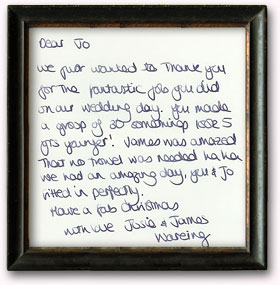 Dear Jo
We just wanted to thank you
for the fantastic job you did
on our wedding day. You made
a group of 30 somethings look 5
yrs younger! James was amazed
that no trowel was needed ha ha
We had an amazing day, you & Jo
fitted in perfectly.
Have a fab Christmas
with love Josie & James
Wareing